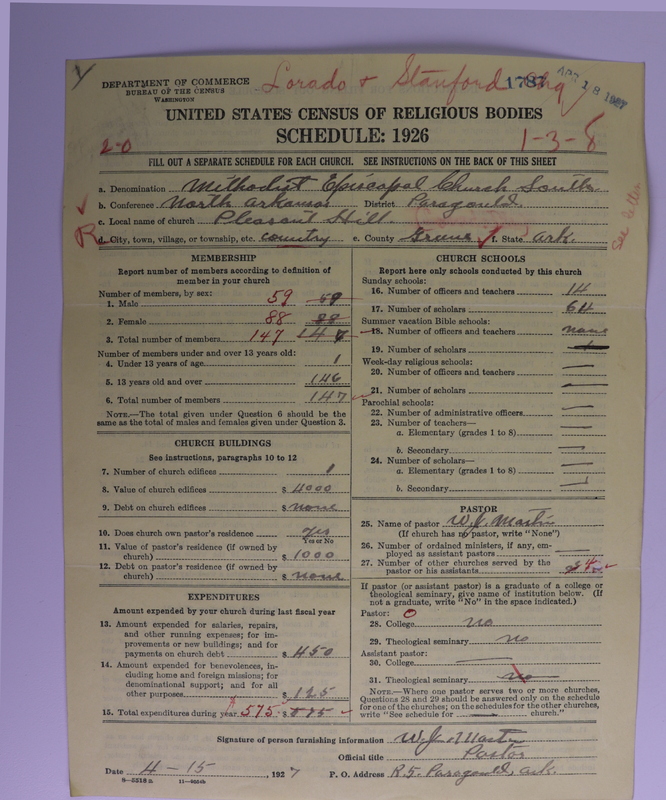 DEPARTMENT OF COMMERCE
BUREAU OF THE CENSUS
WASHINGTON
Lorado + Stanford Chg
1787
APR 18 1927
UNITED STATES CENSUS OF RELIGIOUS BODIES
SCHEDULE: 1926
2-0
1-3-8
FILL OUT A SEPARATE SCHEDULE FOR EACH CHURCH. SEE INSTRUCTIONS ON THE BACK OF THIS SHEET
a. Denomination Methodist Episcopal Church South
b. Conference North Arkansas District Paragould
c. Local name of church Pleasant Hill
R
d. City, town, village, or township, etc. country e. County Greene f. State Ark.
See letter
MEMBERSHIP
Report number of members according to definition of
member in your church
Number of members, by sex:
1. Male 59 59
2. Female 88 88
3. Total number of members 147 147
Number of members under and over 13 years old:
4. Under 13 years of age 1
5. 13 years old and over 146
6. Total number of members 147
NOTE.—The total given under Question 6 should be the
same as the total of males and females given under Question 3.
CHURCH BUILDINGS
See instructions, paragraphs 10 to 12
7. Number of church edifices 1
8. Value of church edifices $ 4000
9. Debt on church edifices $ none
10. Does church own pastor's residence yes
Yes or No
11. Value of pastor's residence (if owned by
church) $ 1000
12. Debt on pastor's residence (if owned by
church) $ none
EXPENDITURES
Amount expended by your church during last fiscal year
13. Amount expended for salaries, repairs,
and other running expenses; for im-
provements or new buildings; and for
payments on church debt $ 450
14. Amount expended for benevolences, in-
cluding home and foreign missions; for
denominational support; and for all
other purposes $ 125
15. Total expenditures during year 575 $ 575
CHURCH SCHOOLS
Report here only schools conducted by this church
Sunday schools:
16. Number of officers and teachers 14
17. Number of scholars 64
Summer vacation Bible schools:
18. Number of officers and teachers none
19. Number of scholars
Week-day religious schools:
20. Number of officers and teachers —
21. Number of scholars —
Parochial schools:
22. Number of administrative officers —
23. Number of teachers—
a. Elementary (grades 1 to 8) —
b. Secondary —
24. Number of scholars—
a. Elementary (grades 1 to 8) —
b. Secondary —
PASTOR
25. Name of pastor W. J. Martin
(If church has no pastor, write "None")
26. Number of ordained ministers, if any, em-
ployed as assistant pastors —
27. Number of other churches served by the
pastor or his assistants 4
If pastor (or assistant pastor) is a graduate of a college or
theological seminary, give name of institution below. (If
not a graduate, write "No" in the space indicated.)
Pastor: O
28. College no
29. Theological seminary no
Assistant pastor:
30. College —
31. Theological seminary no
NOTE.—Where one pastor serves two or more churches,
Questions 28 and 29 should be answered only on the schedule
for one of the churches; on the schedules for the other churches,
write "See schedule for — church."
Signature of person furnishing information W. J. Martin
Official title Pastor
Date 4-15, 1927 P. O. Address R 5. Paragould, Ark.
8—5518 a 11—4664b